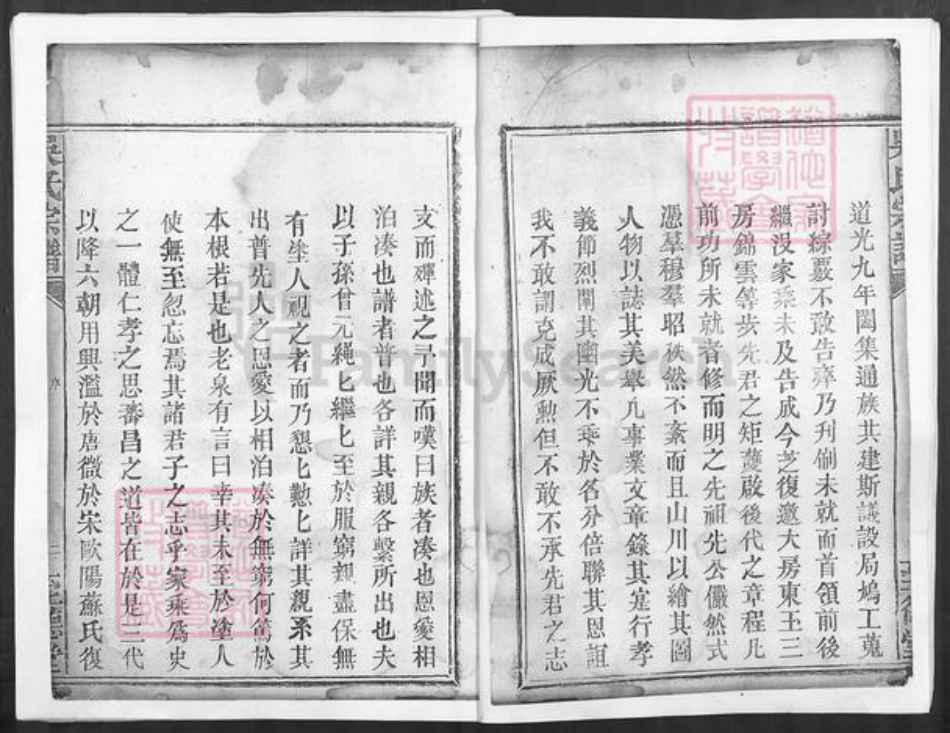 道光九年闔集通族共建斯議設局鳩工蒐
討綜覈不敢告瘁乃刋劂未就而首領前後
繼沒家乘未及告成今芝復邀大房東玉三
房錦雲等步先君之矩蕿啟後代之章程凡
前功所未就者修而明之先祖先公儼然式
憑羣穆羣昭秩然不紊而且山川以繪其圖
人物以誌其美舉凡事業文章錄其寔行孝
義節烈闡其幽光不乖於名分倍聯其恩誼
我不敢謂克成厥勲但不敢不承先君之志
支而殫述之予聞而嘆曰族者凑也恩愛相
泊凑也譜者普也各詳其親各繫所出也夫
以子孫曾元繩匕繼匕至於服窮親盡保無
有塗人視之者而乃懇匕懃匕詳其親系其
出普先人之恩愛以相泊凑於無窮何篤於
本根若是也老泉有言曰幸其未至於塗人
使無至忽忘焉其諸君子之志乎家乘為史
之一體仁孝之思蕃昌之道皆在於是三代
以降六朝用興濫於唐微於宋歐陽蘇氏復
吳氏宗譜
序